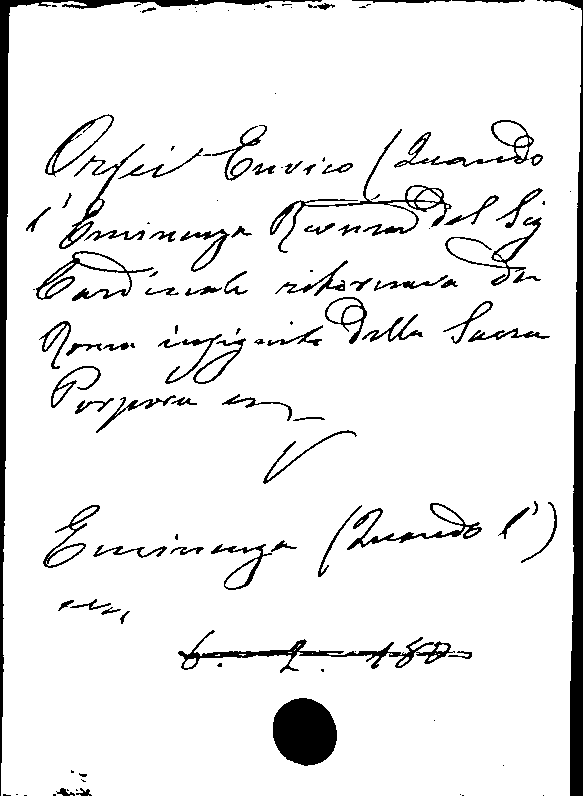 Orfei Enrico (Quando
l'Eminenza Reverend del Sig
Cardinale ritornava da
Roma insignito della Sacra
Porpora ec
V
Eminenza (Quando l')
ecc,
6. 2. 180